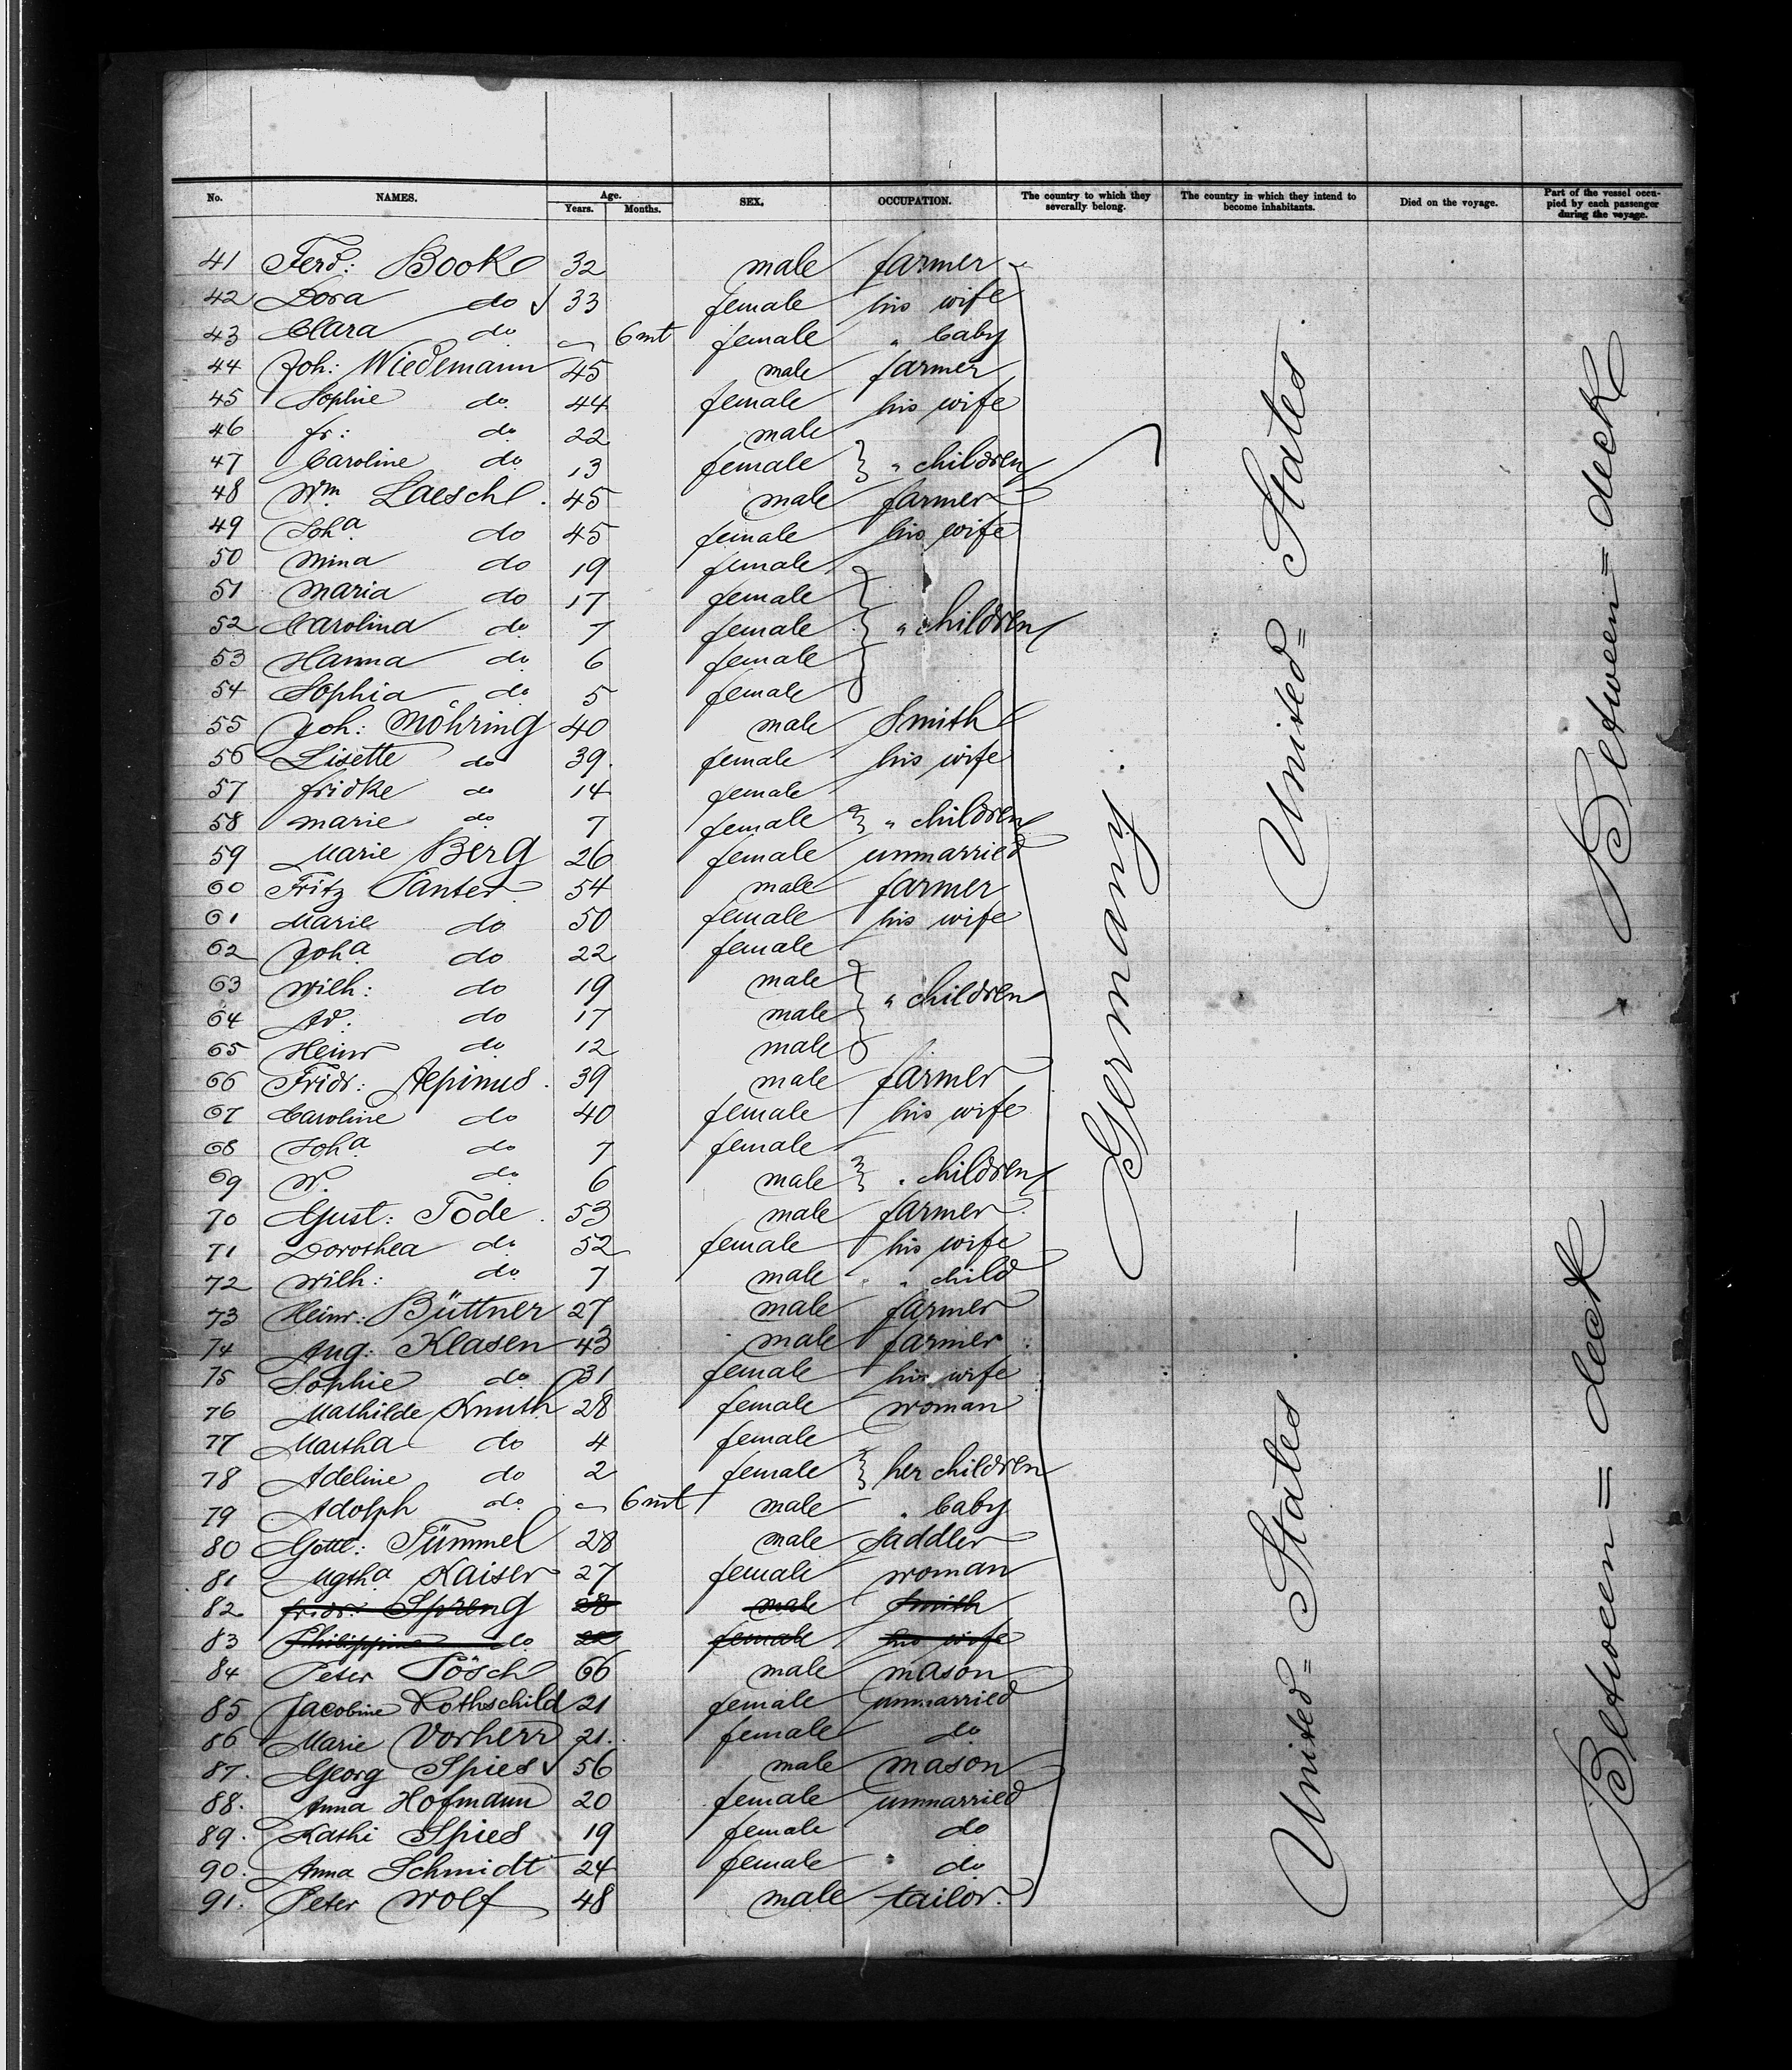 No. NAMES. Age. Years. Months. SEX. OCCUPATION. The country to which they severally belong. The country in which they intend to become inhabitants. Died on the voyage. Part of the vessel occupied by each passenger during the voyage.
41 Ferd: Book 32 male farmer
42 Dora do 33 female his wife
43 Clara do 6 mt female " baby
44 Joh: Wiedemann 45 male farmer
45 Sophie do 44 female his wife
46 fr: do 22 male
47 Caroline do 13 female " children
48 Wm Laesch 45 male farmer
49 Joha do 45 female his wife
50 Mina do 19 female
51 Maria do 17 female
52 Carolina do 7 female " children
53 Hanna do 6 female
54 Sophia do 5 female
55 Joh: Möhring 40 male Smith
56 Lisette do 39 female his wife
57 fridke do 14 female
58 marie do 7 female " children
59 Marie Berg 26 female unmarried
60 Fritz Panter 54 male farmer
61 Marie do 50 female his wife
62 Joha do 22 female
63 Wilh: do 19 male " children
64 Ad: do 17 male
65 Heinr do 12 male
66 Fridr: Aepinus 39 male farmer
67 Caroline do 40 female his wife
68 Joha do 7 female
69 W. do 6 male " children
70 Gust: Tode 53 male farmer
71 Dorothea do 52 female his wife
72 Wilh: do 7 male " child
73 Heinr: Büttner 27 male farmer
74 Aug: Klasen 43 male farmer
75 Sophie do 31 female his wife
76 Mathilde Knuth 28 female woman
77 Martha do 4 female
78 Adeline do 2 female her children
79 Adolph do 6 mt male " baby
80 Gottl: Tümmel 28 male Saddler
81 Mgtha Kaiser 27 female woman
82 fridr: Spreng 28 male Smith
83 Philippine do 22 female his wife
84 Peter Pösch 66 male mason
85 Jacobine Rothschild 21 female unmarried
86 Marie Vorherr 21 female do
87. Georg Spies 56 male mason
88. Anna Hofmann 20 female unmarried
89. Kathi Spies 19 female do
90. Anna Schmidt 24 female do
91. Peter Wolf 48 male tailor.
Germany.
United= States.
United= States
Between= deck
Between= deck